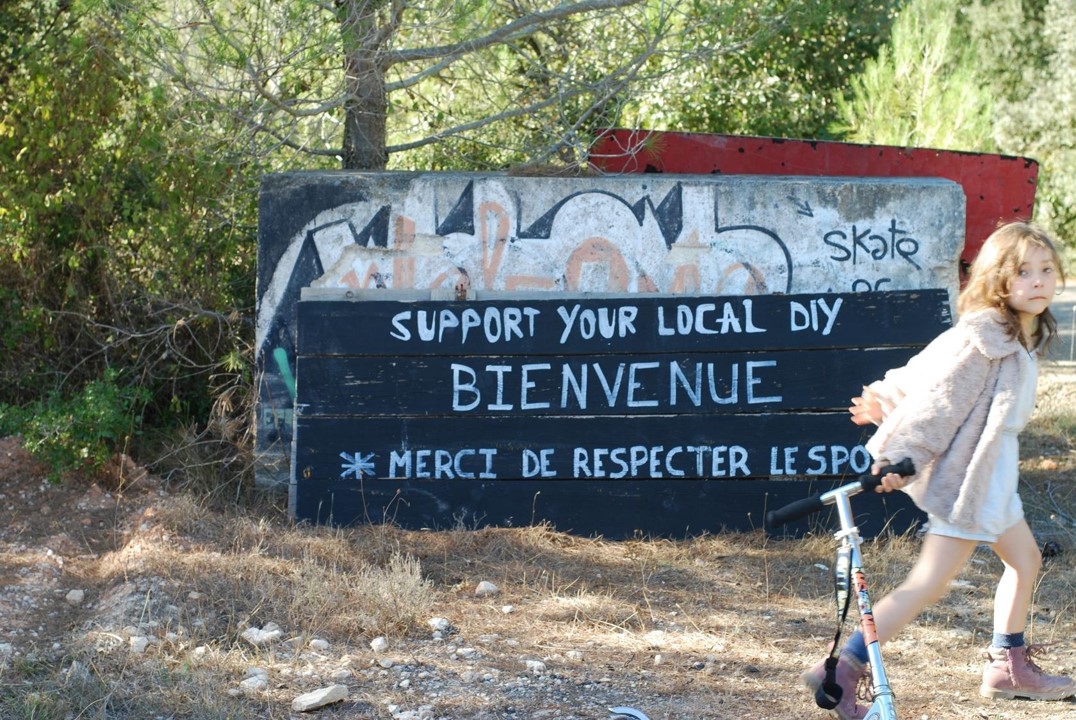 skate
SUPPORT YOUR LOCAL DIY
BIENVENUE
* MERCI DE RESPECTER LE SPO